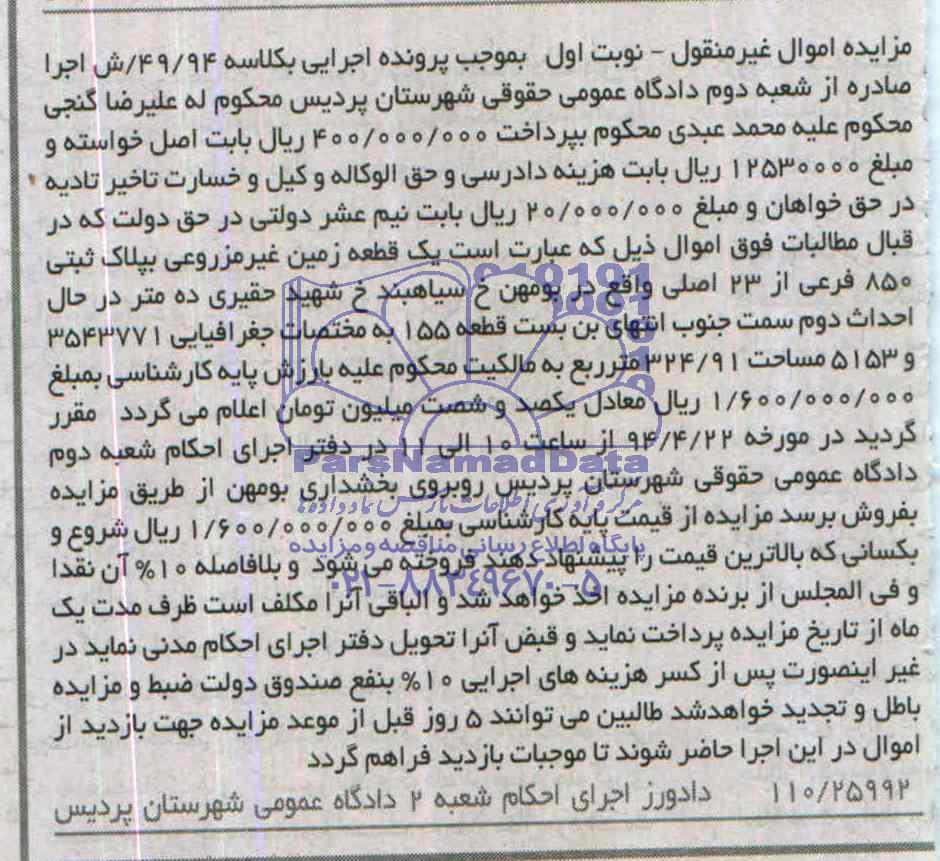 مزایده اموال غیرمنقول - نوبت اول بموجب پرونده اجرایی بکلاسه ۴۹/۹۴/ش اجرا
صادره از شعبه دوم دادگاه عمومی حقوقی شهرستان پردیس محکوم له علیرضا گنجی
محکوم علیه محمد عبدی محکوم بپرداخت ۴۰۰/۰۰۰/۰۰۰ ریال بابت اصل خواسته و
مبلغ ۱۲۵۳۰۰۰۰ ریال بابت هزینه دادرسی و حق الوکاله و کیل و خسارت تاخیر تادیه
در حق خواهان و مبلغ ۲۰/۰۰۰/۰۰۰ ریال بابت نیم عشر دولتی در حق دولت که در
قبال مطالبات فوق اموال ذیل که عبارت است یک قطعه زمین غیرمزروعی بپلاک ثبتی
۸۵۰ فرعی از ۲۳ اصلی واقع در بومهن خ سیاهبند خ شهید حقیری ده متر در حال
احداث دوم سمت جنوب انتهای بن بست قطعه ۱۵۵ به مختصات جغرافیایی ۳۵۴۳۷۷۱
و ۵۱۵۳ مساحت ۳۲۴/۹۱ مترربع به مالکیت محکوم علیه بارزش پایه کارشناسی بمبلغ
۱/۶۰۰/۰۰۰/۰۰۰ ریال معادل یکصد و شصت میلیون تومان اعلام می گردد مقرر
گردید در مورخه ۹۴/۴/۲۲ از ساعت ۱۰ الی ۱۱ در دفتر اجرای احکام شعبه دوم
ParsNamadData
دادگاه عمومی حقوقی شهرستان پردیس روبروی بخشداری بومهن از طریق مزایده
بفروش برسد مزایده از قیمت پایه کارشناسی بمبلغ ۱/۶۰۰/۰۰۰/۰۰۰ ریال شروع و
پایگاه اطلاع رسانی مناقصه و مزایده
بکسانی که بالاترین قیمت را پیشنهاد دهند فروخته می شود و بلافاصله ۱۰% آن نقدا
۰۲۱-۸۸۳۴۹۶۷۰-۵
و فی المجلس از برنده مزایده اخذ خواهد شد و الباقی آنرا مکلف است ظرف مدت یک
ماه از تاریخ مزایده پرداخت نماید و قبض آنرا تحویل دفتر اجرای احکام مدنی نماید در
غیر اینصورت پس از کسر هزینه های اجرایی ۱۰% بنفع صندوق دولت ضبط و مزایده
باطل و تجدید خواهدشد طالبین می توانند ۵ روز قبل از موعد مزایده جهت بازدید از
اموال در این اجرا حاضر شوند تا موجبات بازدید فراهم گردد
۱۱۰/۲۵۹۹۲ دادورز اجرای احکام شعبه ۲ دادگاه عمومی شهرستان پردیس